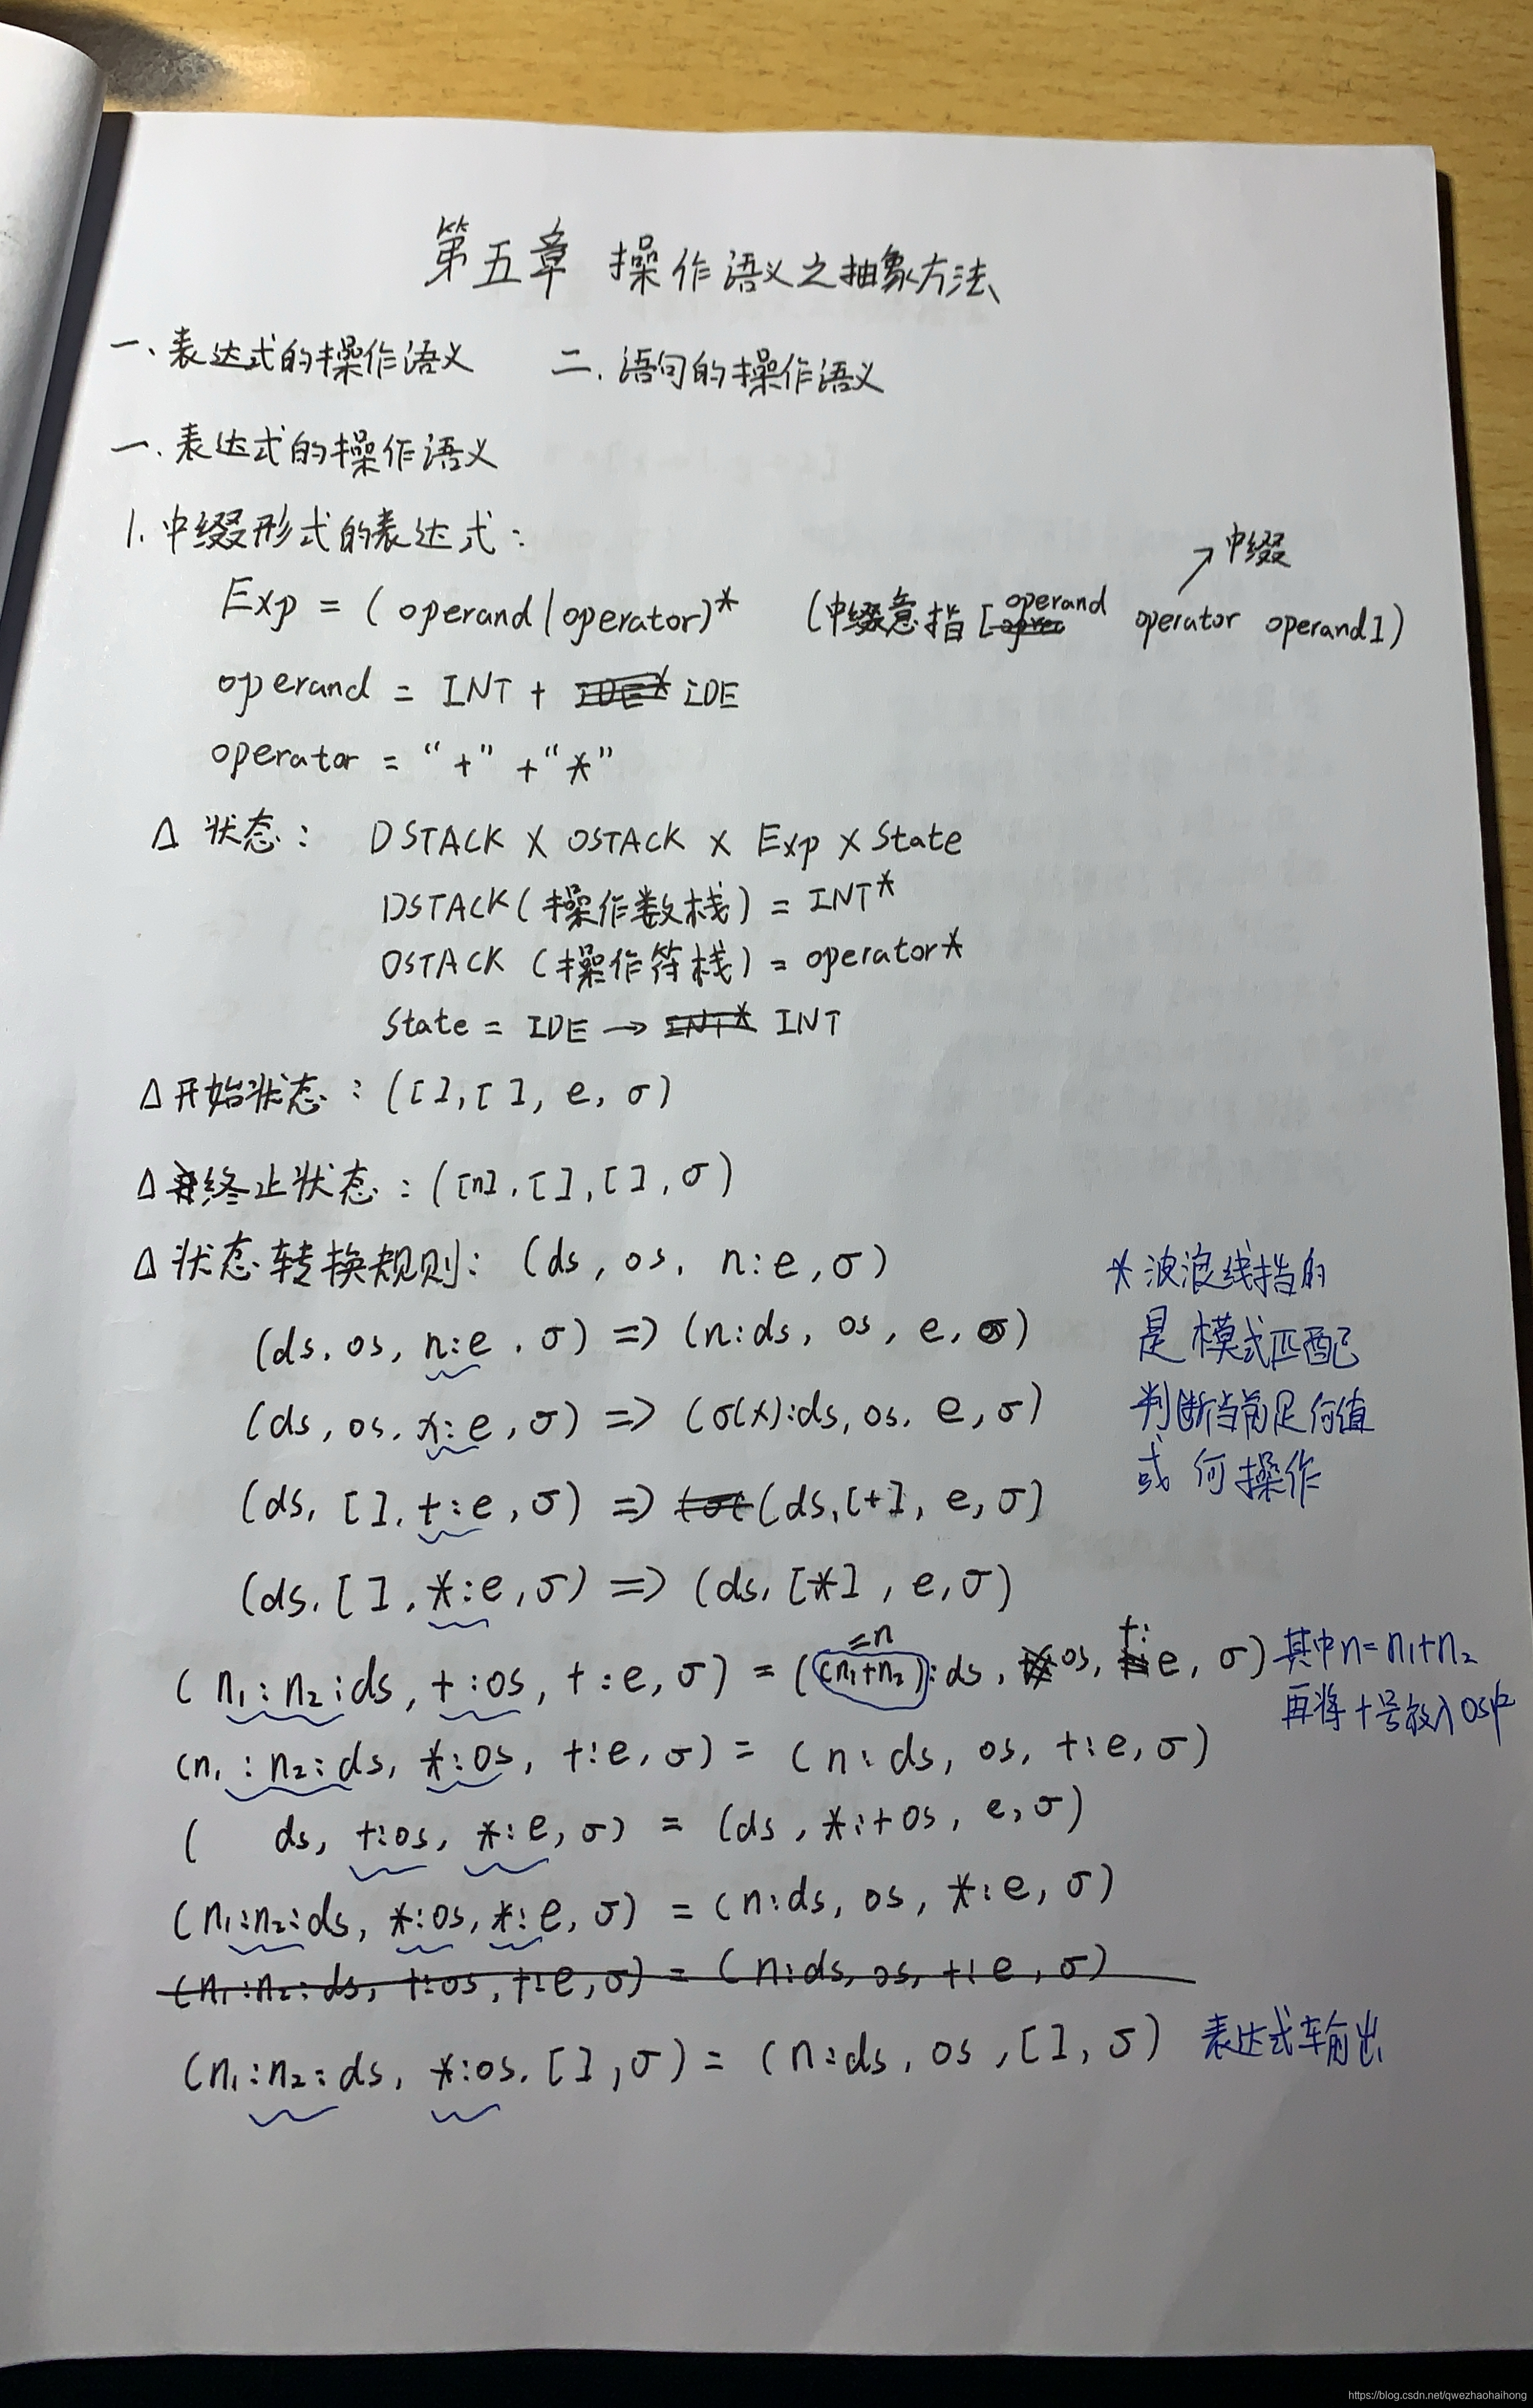 第五章 操作语义之抽象方法
一、表达式的操作语义 二、语句的操作语义
一、表达式的操作语义
1. 中缀形式的表达式：
中缀
Exp = ( operand | operator)* (中缀意指 [operand operator operand])
operand = INT + IDE
operator = “+” + “*”
Δ 状态： DSTACK X OSTACK X Exp X State
DSTACK (操作数栈) = INT*
OSTACK (操作符栈) = operator*
State = IDE → INT
Δ 开始状态：([ ], [ ], e, σ)
Δ 终止状态：([n], [ ], [ ], σ)
Δ 状态转换规则：(ds, os, n:e, σ)
(ds, os, n:e, σ) => (n:ds, os, e, σ)
(ds, os, x:e, σ) => (σ(x):ds, os, e, σ)
(ds, [ ], +:e, σ) => (ds, [+], e, σ)
(ds, [ ], *:e, σ) => (ds, [*], e, σ)
* 波浪线指的
是模式匹配
判断当前是何值
或何操作
(n₁:n₂:ds, +:os, +:e, σ) = ((n₁+n₂):ds, os, +:e, σ) 其中n=n₁+n₂
=n
再将+号放入os中
(n₁:n₂:ds, *:os, +:e, σ) = (n:ds, os, +:e, σ)
( ds, +:os, *:e, σ) = (ds, *:+os, e, σ)
(n₁:n₂:ds, *:os, *:e, σ) = (n:ds, os, *:e, σ)
(n₁:n₂:ds, +:os, +:e, σ) = (n:ds, os, +:e, σ)
(n₁:n₂:ds, *:os, [ ], σ) = (n:ds, os, [ ], σ) 表达式车输出
https://blog.csdn.net/qwezhaohaihong